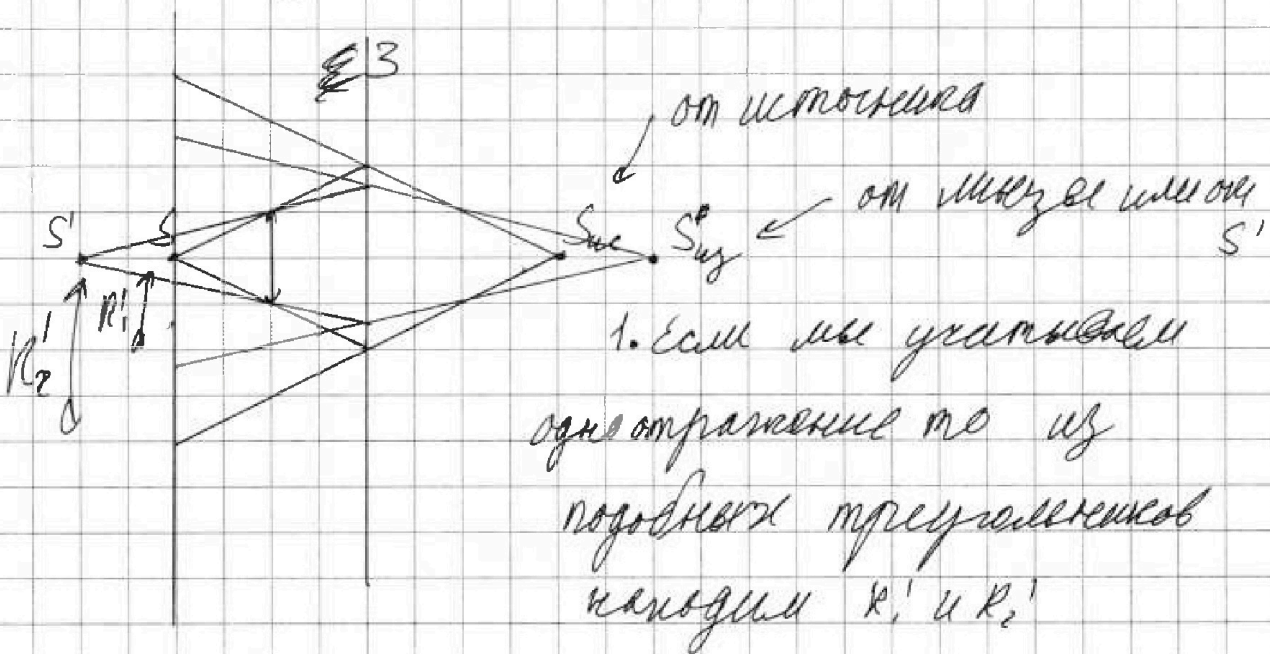 З
от источника
от линзы или от
S'
S' S Sис S'из
R'₁
R'₂
1. Если мы учитываем
одно отражение то из
подобных треугольников
находим R'₁ и R'₂